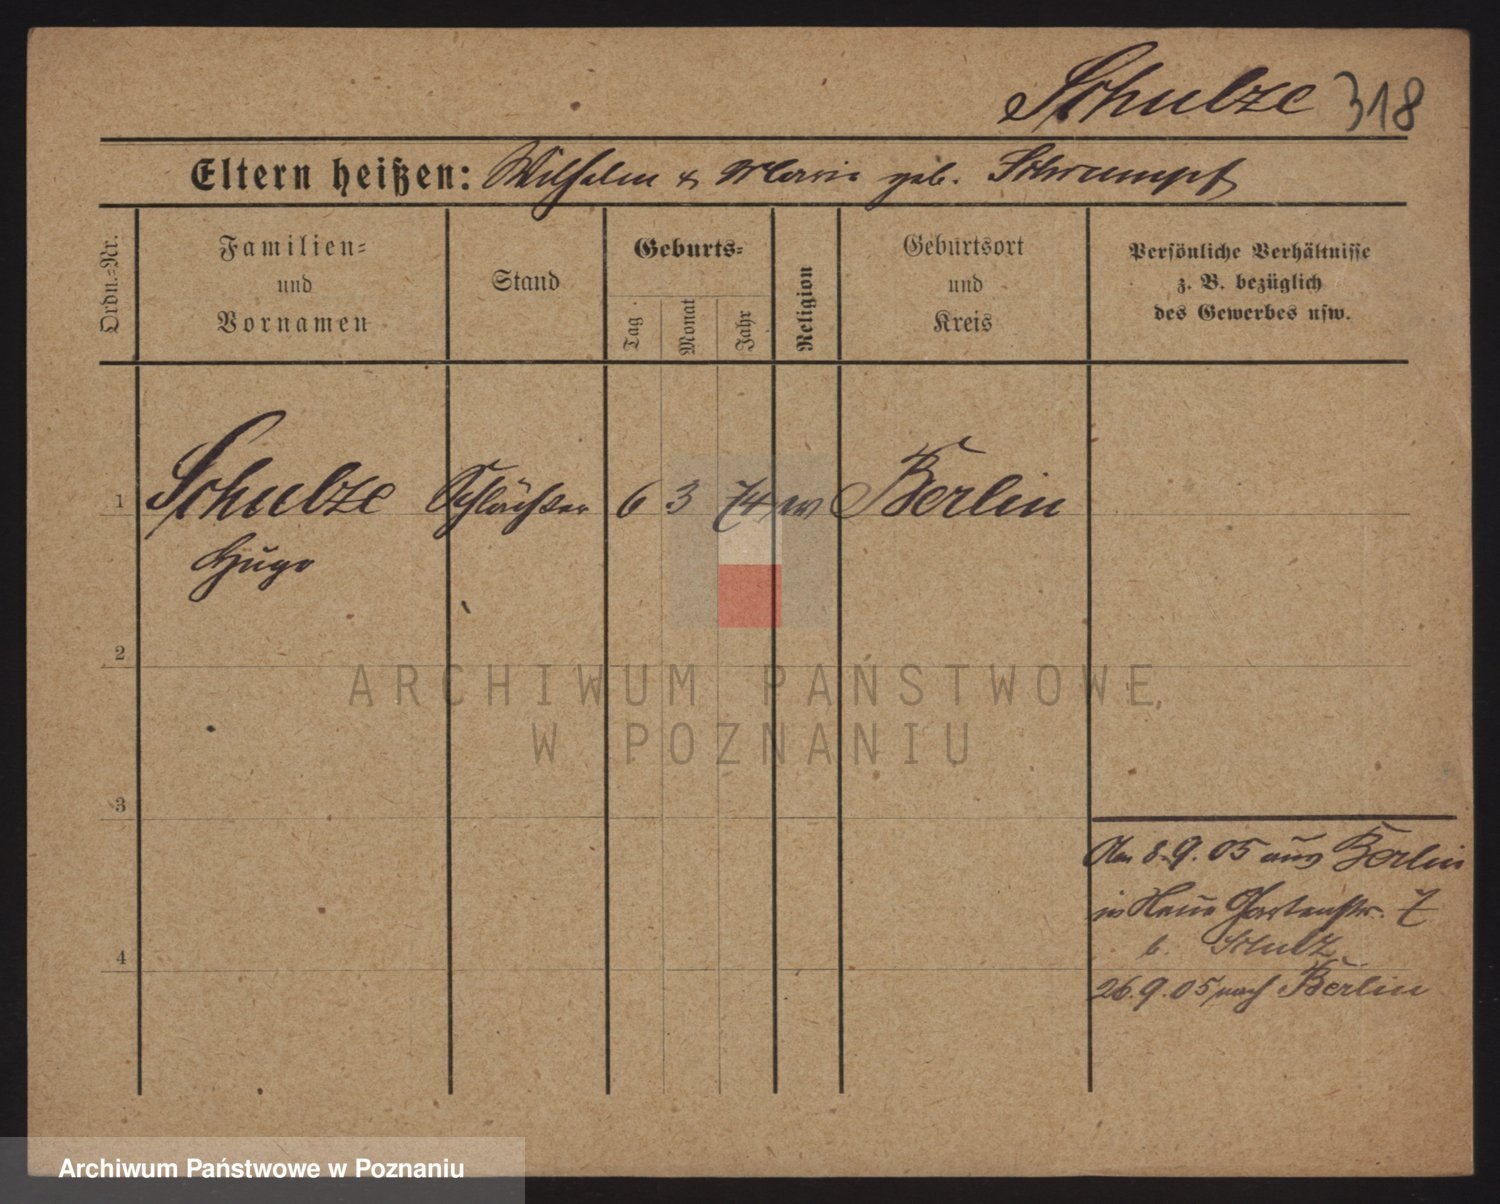 Schulze 318
Eltern heißen: Wilhelm & Marie geb. Schrumpf
Ordn.-Nr.
Familien-
und
Vornamen
Stand
Geburts-
Tag
Monat
Jahr
Religion
Geburtsort
und
Kreis
Persönliche Verhältnisse
z. B. bezüglich
des Gewerbes usw.
1 Schulze Schlächter 6 3 74 Berlin
Hugo
2
ARCHIWUM PAŃSTWOWE
W POZNANIU
3
Am 8.9.05 aus Berlin
in Neue Gartenstr. 7
b. Schulz
4
26.9.05 nach Berlin
Archiwum Państwowe w Poznaniu